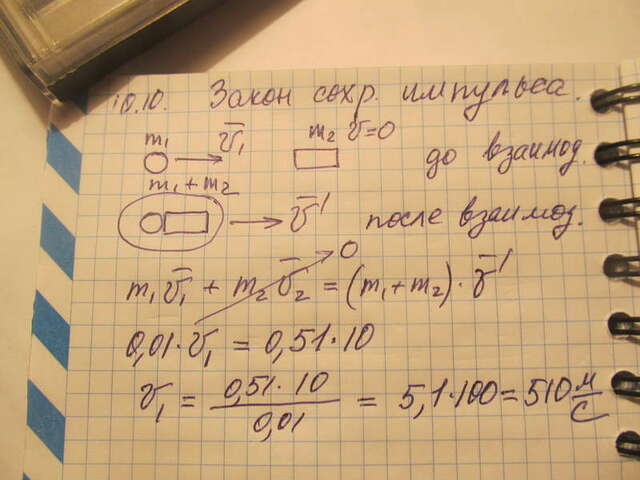 10.10. Закон сохр. импульса.
m₁ v̄₁ m₂ v̄=0 до взаимод.
m₁+m₂
v̄' после взаимод.
0
m₁v̄₁ + m₂v̄₂ = (m₁+m₂)·v̄'
0,01·v₁ = 0,51·10
v₁ = 0,51·10 / 0,01 = 5,1·100 = 510 м/с